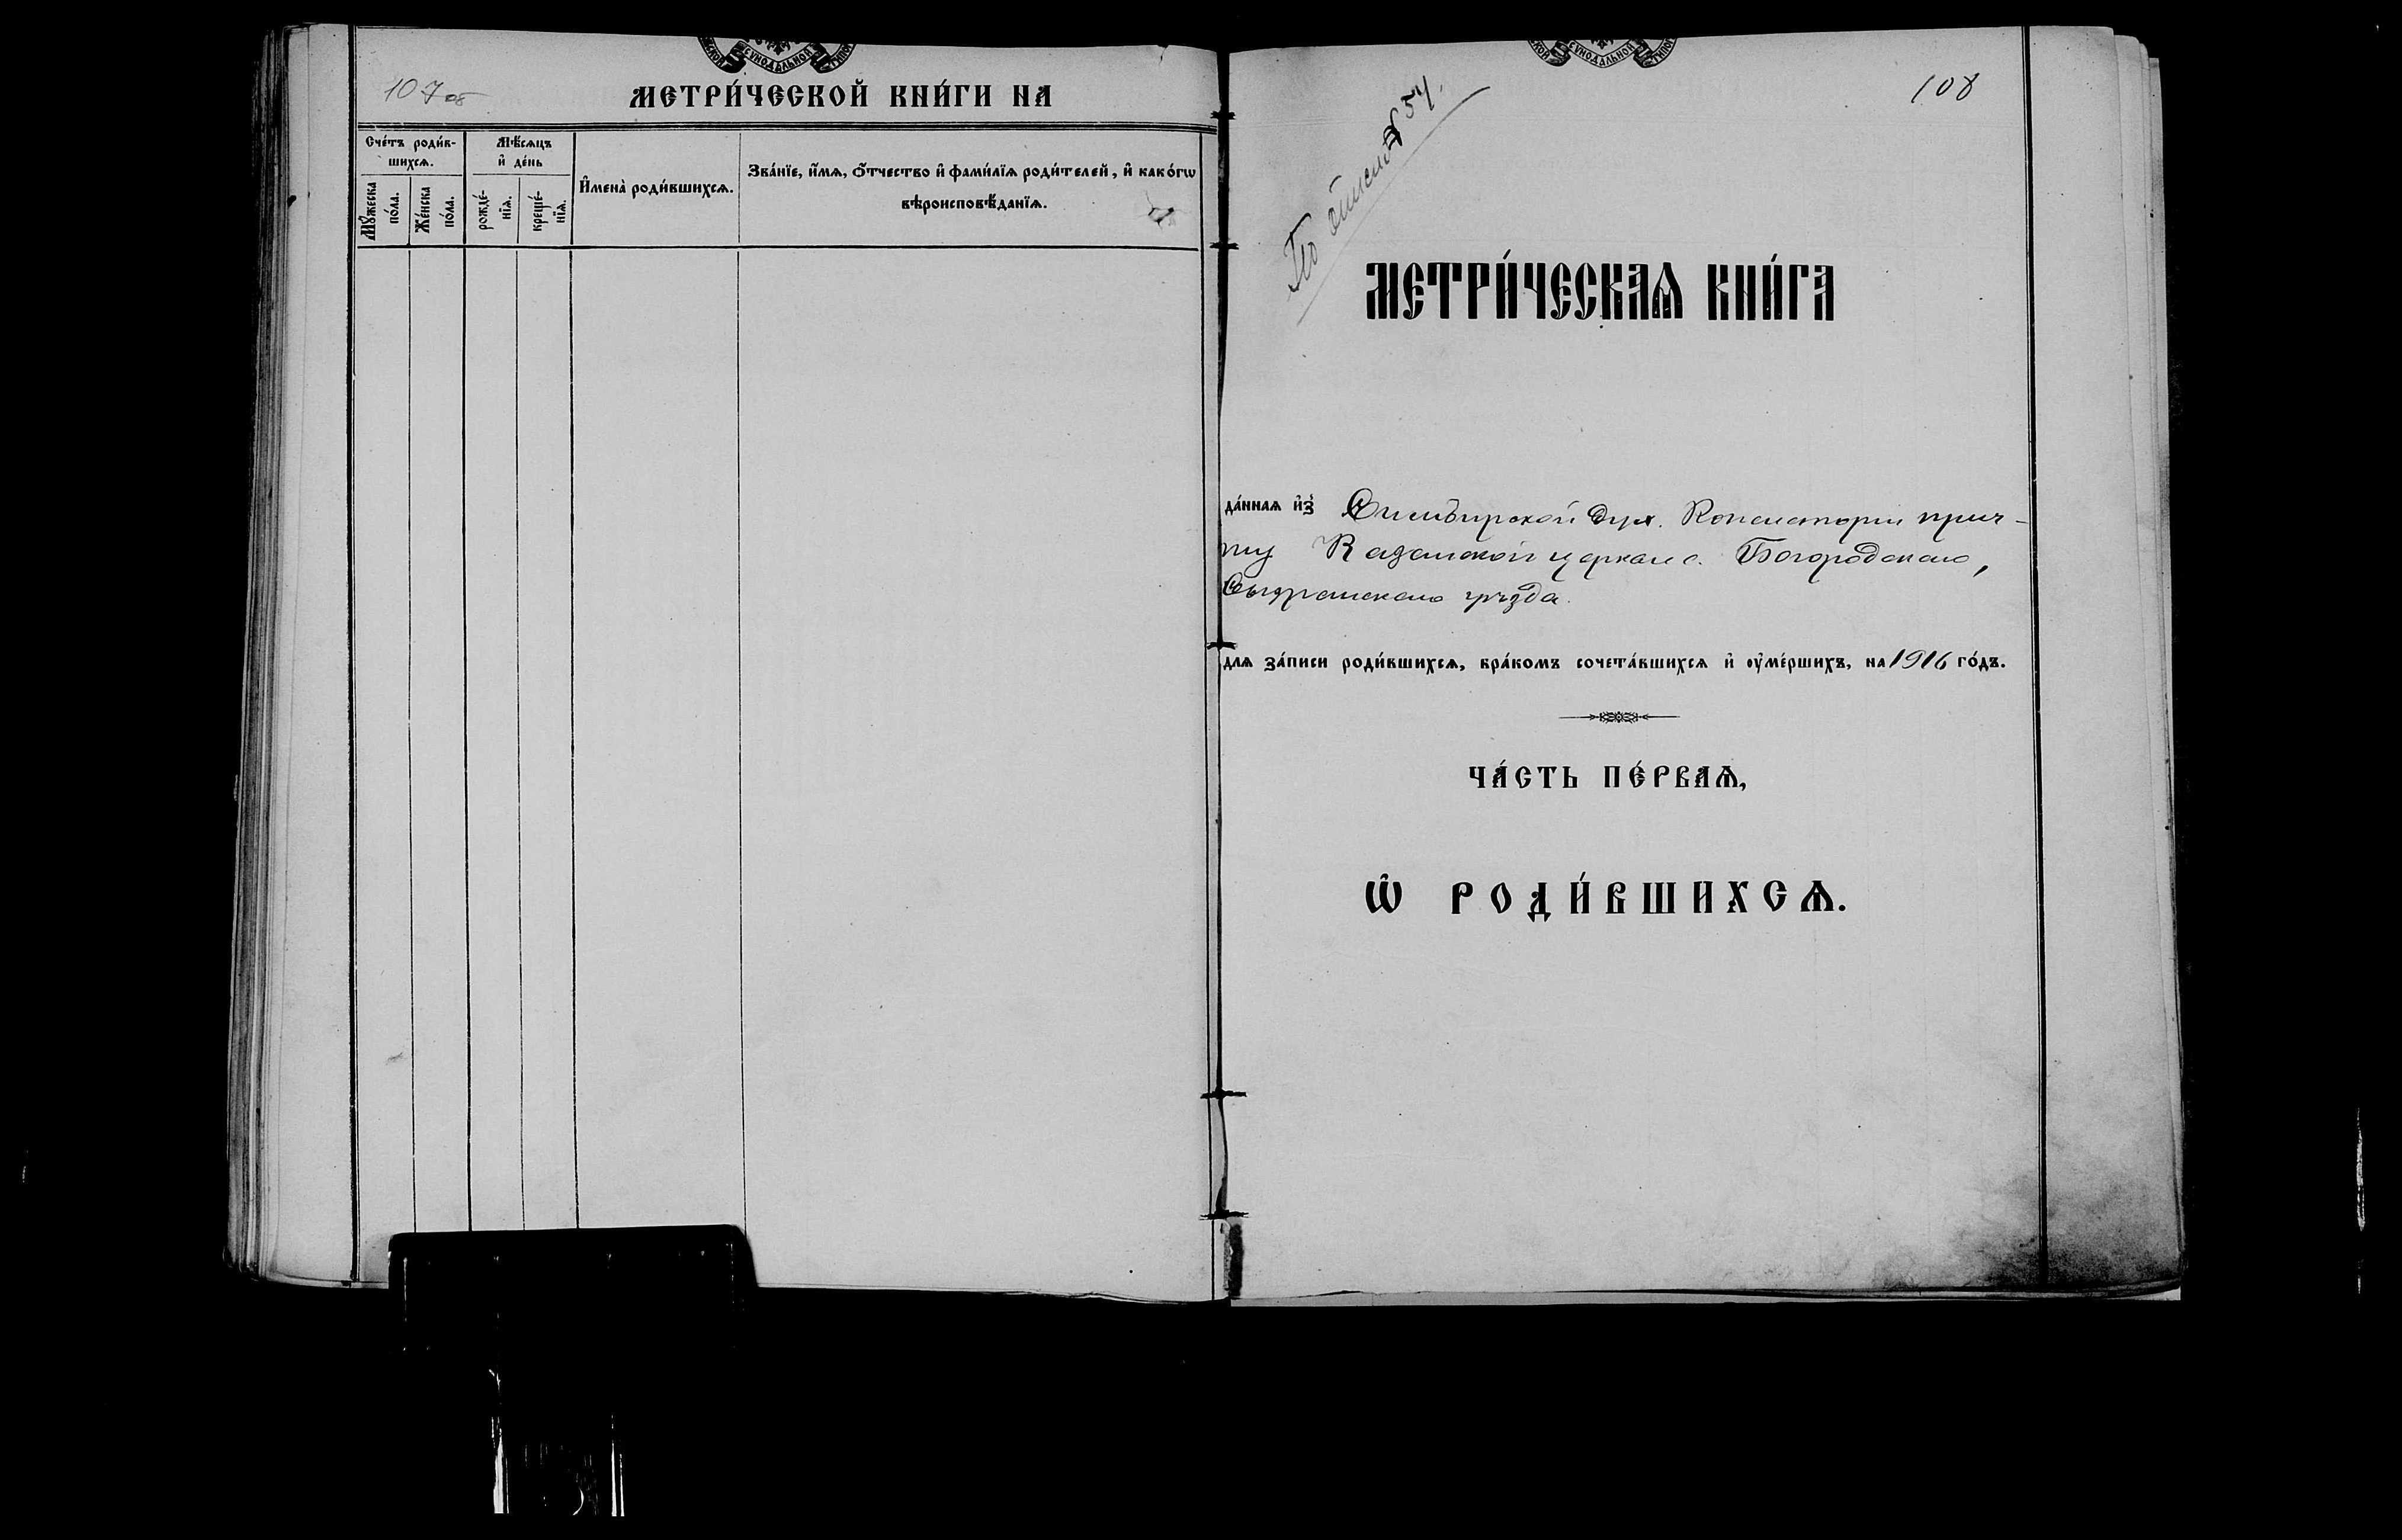 СѴНОДАЛЬНОЙ
107 об
МЕТРИ́ЧЕСКОЙ КНИ́ГИ НА
Сче́тъ роди́в-
шихсѧ.
Мѣ́сѧцъ
и҆ де́нь
И҆мена̀ роди́вшихсѧ.
Зва́нїе, и҆́мѧ, ѻ҆́тчество и҆ фами́лїѧ роди́телей, и҆ како́гѡ
вѣроисповѣ́данїѧ.
Мꙋ́жеска
по́ла.
Же́нска
по́ла.
рожде́-
нїѧ.
креще́-
нїѧ.
СѴНОДАЛЬНОЙ
108
По описи № 54.
МЕТРИ́ЧЕСКАѦ КНИ́ГА
да́ннаѧ и҆з̾ Симбирской Дух. Консисторіи прич-
ту Казанской церкви с. Богородскаго,
Сызранскаго уѣзда.
для за́писи роди́вшихсѧ, бра́комъ сочета́вшихсѧ и҆ ᲂу҆ме́ршихъ, на 1916 го́дъ.
ЧА́СТЬ ПЕ́РВАѦ,
Ѡ҆ РОДИ́ВШИХСѦ.